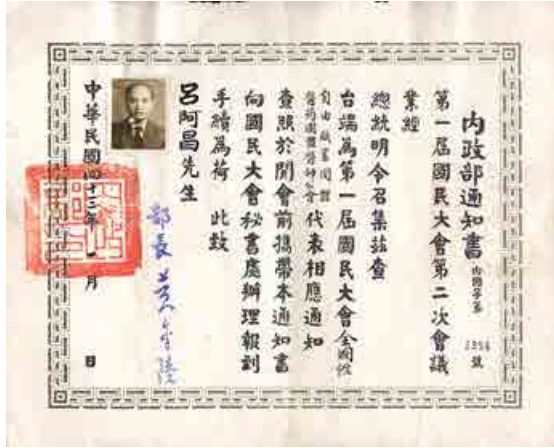 內政部通知書 內國字第2354號
第一屆國民大會第二次會議
業經
總統明令召集茲查
台端為第一屆國民大會全國性
自由職業團體
醫藥團體醫師公會代表相應通知
查照於開會前攜帶本通知書
向國民大會秘書處辦理報到
手續為荷 此致
呂阿昌先生
部長
中華民國四十三年 月 日